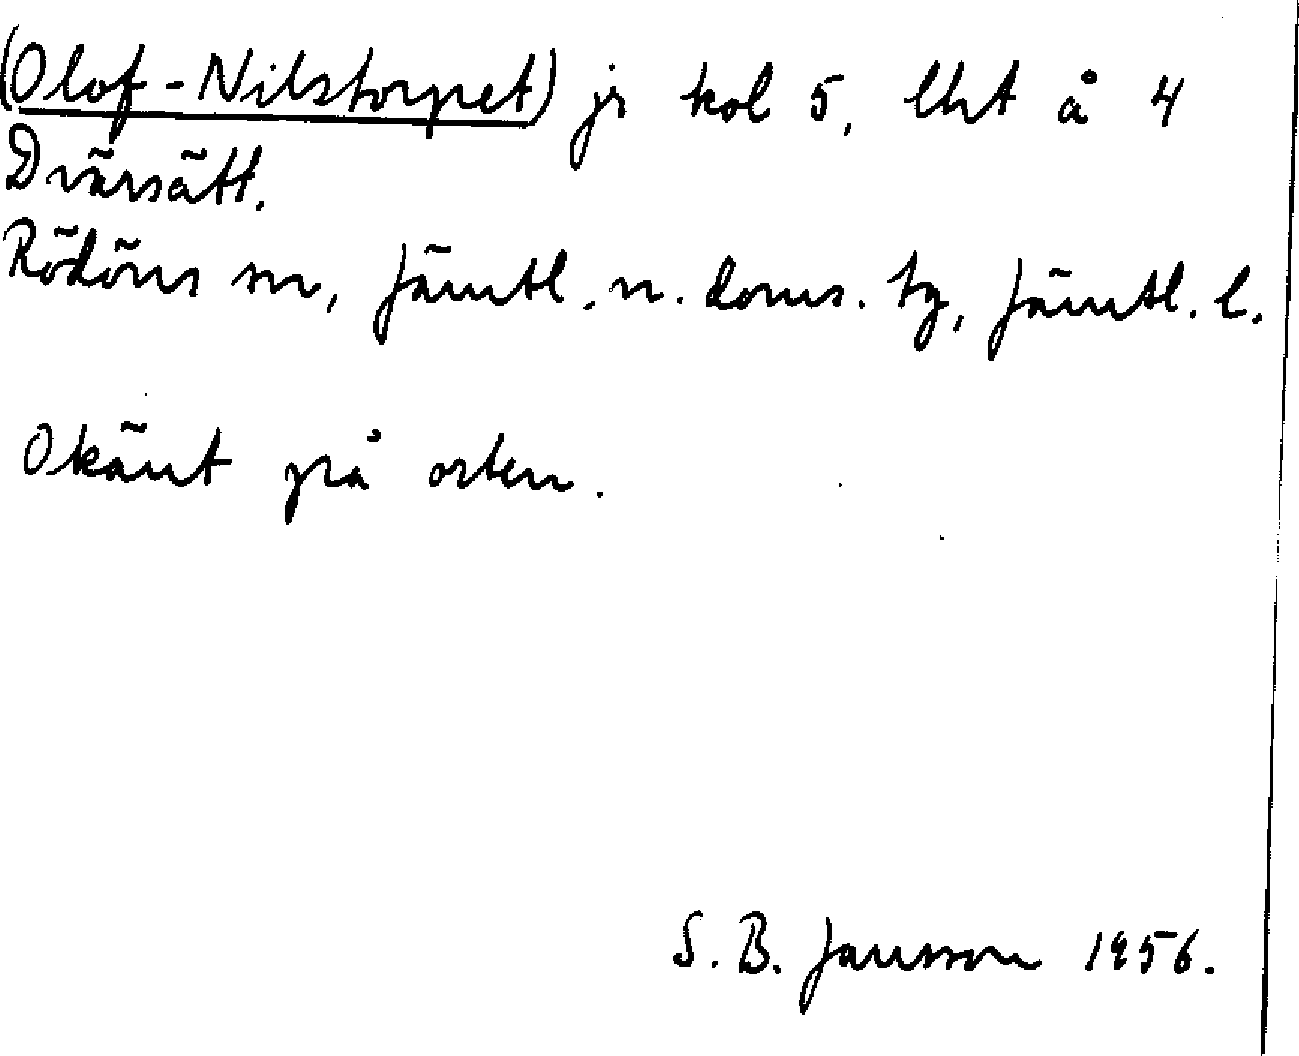 (Olof-Nilstorpet) jr kol 5, lht å 4
Dvärsätt.
Rödöns sn, Jämtl. n. doms. tg, Jämtl. l.
Okänt på orten.
S. B. Jansson 1956.